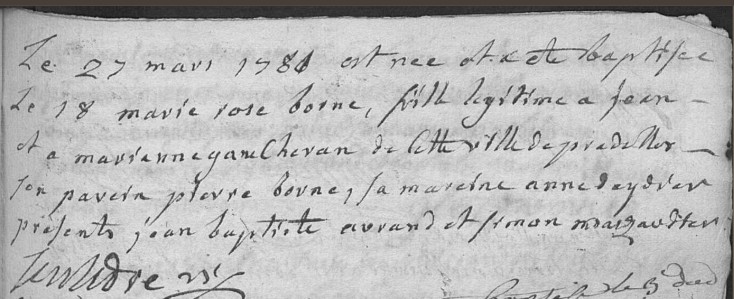 Le 27 mars 1781 est nee et a ete baptisee
le 18 marie rose borne, fille legitime a jean
et a marianne ganechevan de cette ville de pradelles
son parein pierre borne, sa mareine anne deydier
présents jean baptiste avrand et simon
le 5 dud